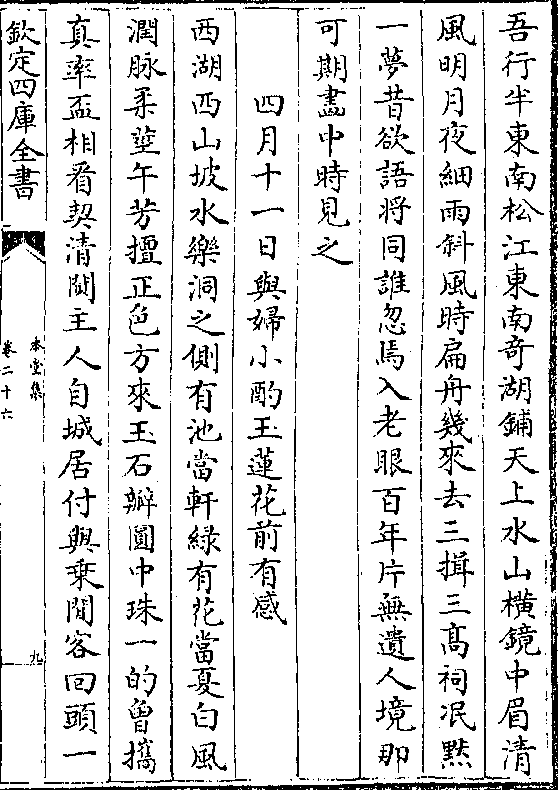 吾行半東南松江東南奇湖鋪天上水山橫鏡中眉清
風明月夜細雨斜風時扁舟幾來去三揖三髙祠泯㸃
一夢昔欲語將同誰忽焉入老眼百年片無遺人境那
可期畫中時見之
四月十一日與婦小酌玉蓮花前有感
西湖西山坡水樂洞之側有池當軒緑有花當夏白風
潤脉柔莖午芳擅正色方來玉石瓣圓中珠一的曽攜
真率盃相看契清閴主人自城居付與乗閒客回頭一
欽定四庫全書
本堂集
卷二十六
九